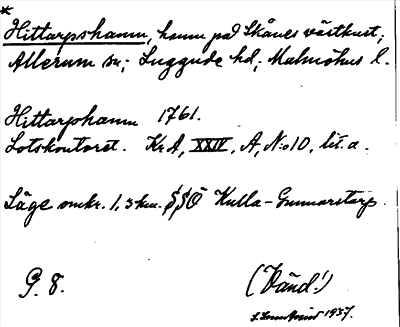 *
Hittarpshamn, hamn på Skånes västkust;
Allerum sn; Luggude hd; Malmöhus l.
Hittarphamn 1761.
Lotskontoret. KrA, XXIV, A, No10, lit. a.
Läge omkr. 1,3 km. SSÖ Kulla-Gunnarstorp.
G. 8.
(Vänd!)
1937.